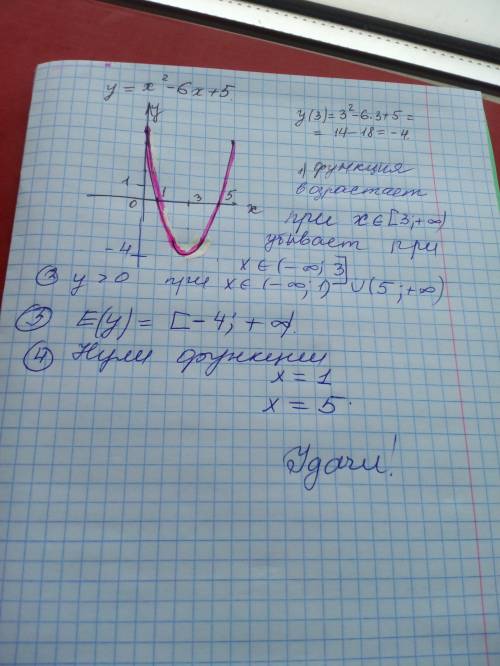 y = x² - 6x + 5
y(3) = 3² - 6·3 + 5 =
= 14 - 18 = -4
y
1
0 1 3 5 x
-4
1) функция
возрастает
при x ∈ [3; +∞)
убывает при
x ∈ (-∞; 3]
② y > 0 при x ∈ (-∞; 1) ∪ (5; +∞)
③ E(y) = [-4; +∞).
④ Нули функции
x = 1
x = 5.
Удачи!